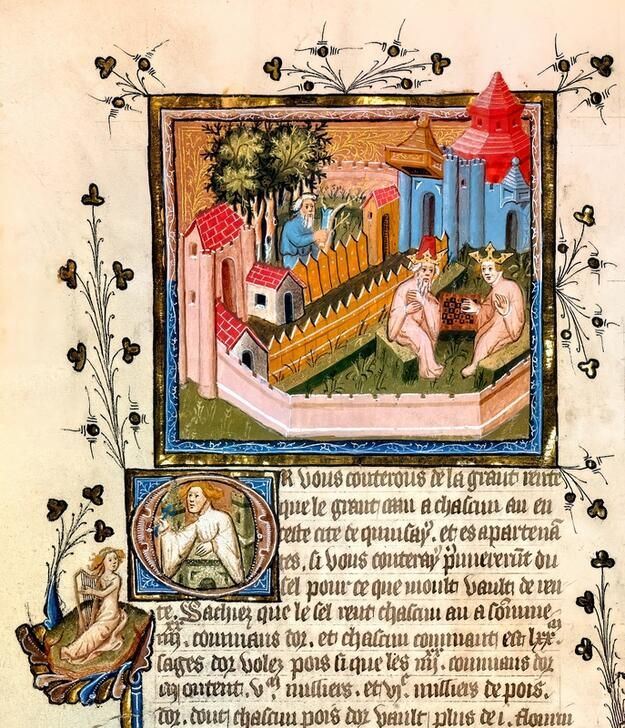 R vous conterons de la grant rente
que le grant caan a chascun an en
ceste cite de quinsay, et es apartenā
ces, si vous conteray p̄mererūt du
sel pour ce que moult vault de ren
te. Sachiez que le sel rent chascun an a sōme
iiii.ˣˣ commans dor, et chascun commant est lxx.ᵐ
sages dor volez pois si que les iiii.ˣˣ commans dor
montent. v.ᵐ milliers. et vi.ᶜ milliers de pois.
dor. dont chascun pois dor vault plus de i. flourin